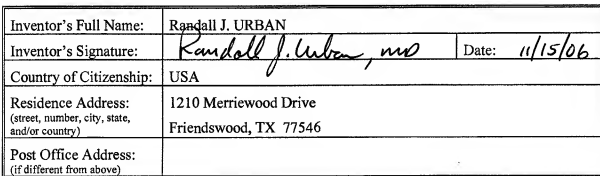 Inventor's Full Name: Randall J. URBAN
Inventor's Signature: Randall J. Urban, MD Date: 11/15/06
Country of Citizenship: USA
Residence Address: 1210 Merriewood Drive
(street, number, city, state,
and/or country) Friendswood, TX 77546
Post Office Address:
(if different from above)